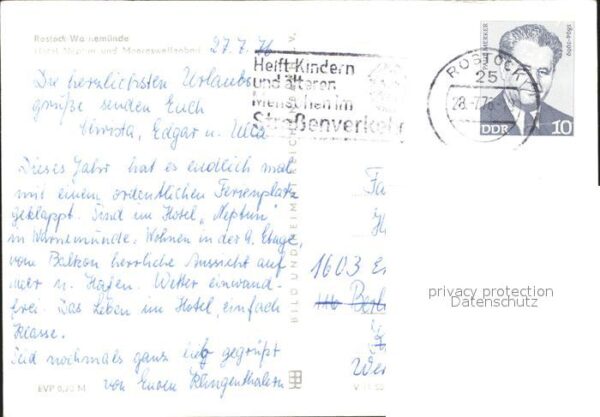 Rostock-Warnemünde
Hotel Neptun und Meereswellenbad
27.7.76
Die herzlichsten Urlaubs-
grüße senden Euch
Christa, Edgar u. Ulla
Dieses Jahr hat es endlich mal
mit einem ordentlichen Ferienplatz
geklappt. Sind im Hotel „Neptun"
in Warnemünde. Wohnen in der 9. Etage,
vom Balkon herrliche Aussicht auf
Meer u. Hafen. Wetter einwand-
frei. Das Leben im Hotel, einfach
Klasse.
Seid nochmals ganz lieb gegrüßt
von Euren Klingenthalern
EVP 0,20 M
BILD UND HEIMAT REICHENBACH
Helft Kindern
und älteren
Menschen im
Straßenverkehr
ROSTOCK
25
28.-7.76
PAUL MERKER
1894-1969
DDR 10
Fa
1603 E
Berl
We
privacy protection
Datenschutz